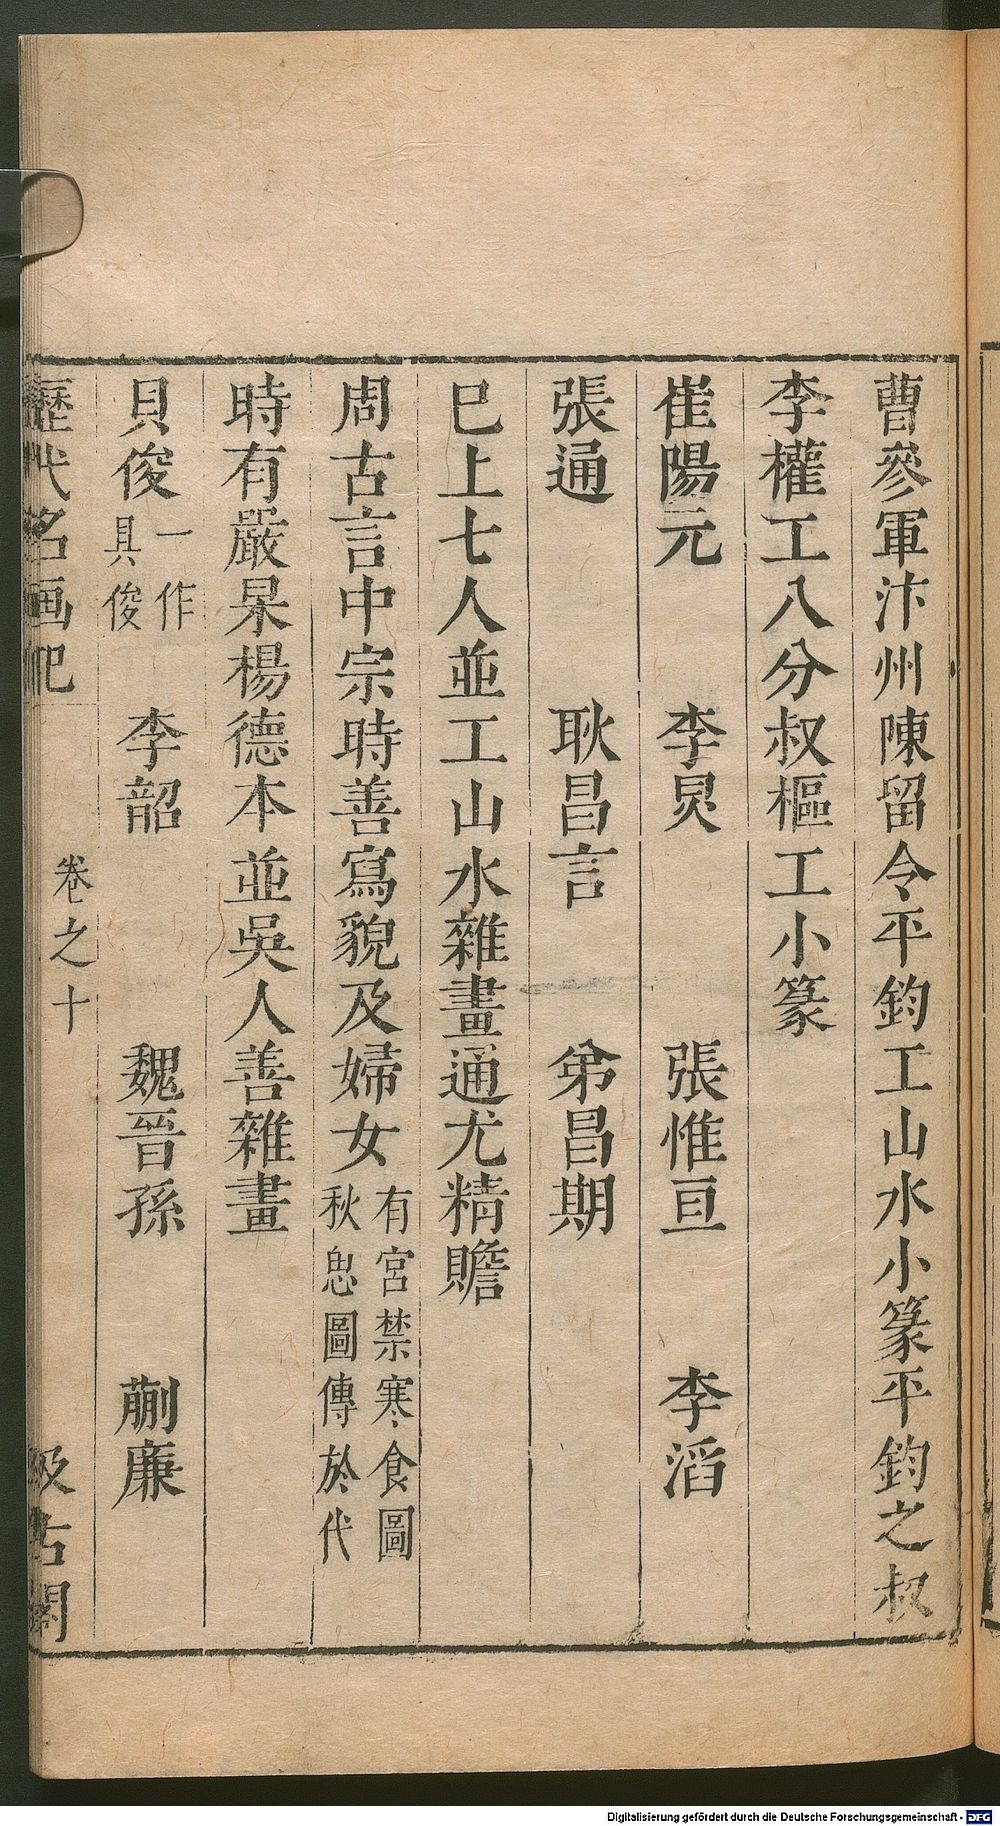 曹參軍汴州陳留令平鈞工山水小篆平鈞之叔
李權工八分叔樞工小篆
崔陽元 李炅 張惟亘 李滔
張通 耿昌言 弟昌期
巳上七人並工山水雜畫通尤精贍
周古言中宗時善寫貌及婦女有宮禁寒食圖
秋思圖傳於代
時有嚴杲楊德本並吳人善雜畫
貝俊一作
具俊 李韶 魏晉孫 蒯廉
歷代名画記 卷之十 汲古閣
Digitalisierung gefördert durch die Deutsche Forschungsgemeinschaft - DFG